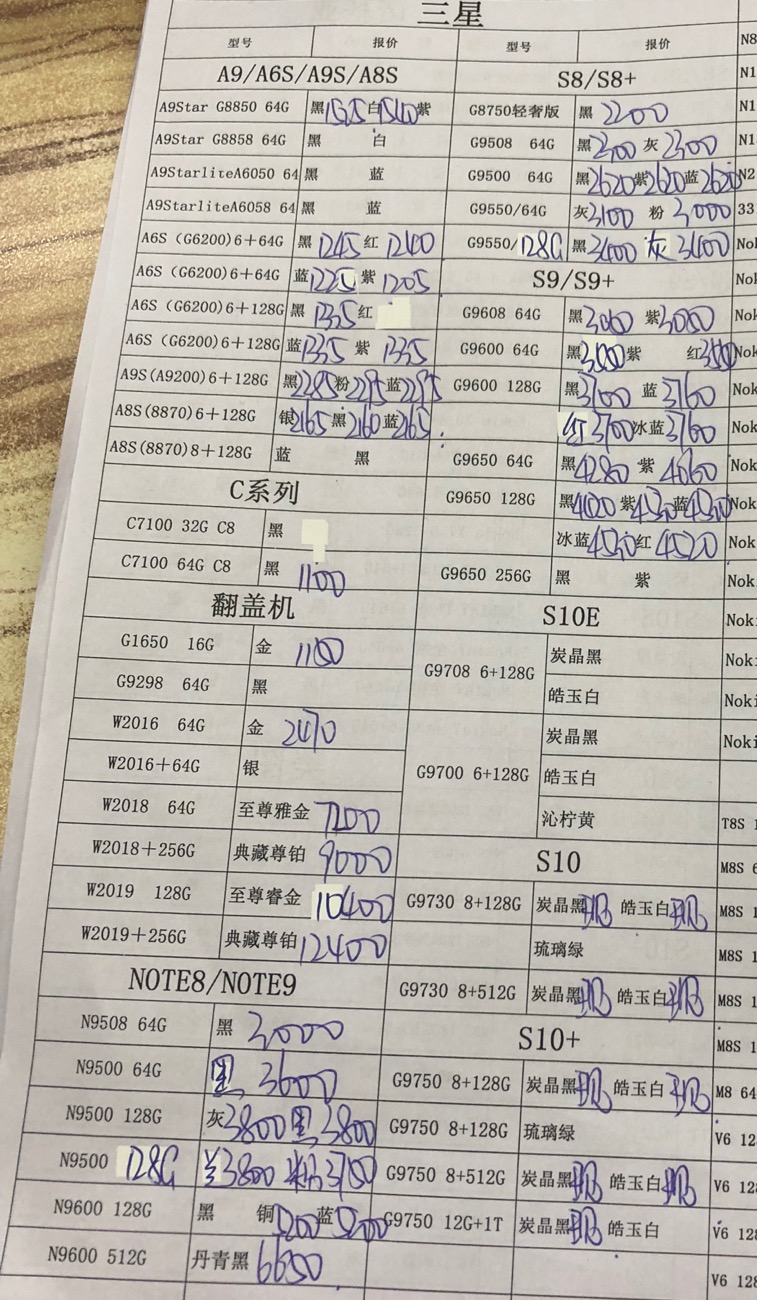 三星
型号 报价 型号 报价 N8
A9/A6S/A9S/A8S S8/S8+ N1
A9Star G8850 64G 黑1515白1510紫 G8750轻奢版 黑 2200 N1
A9Star G8858 64G 黑 白 G9508 64G 黑2300 灰2300 N1
A9StarliteA6050 64 黑 蓝 G9500 64G 黑2620紫2620蓝2620 N2
A9StarliteA6058 64 黑 蓝 G9550/64G 灰3100 粉 3000 33
A6S (G6200)6+64G 黑 1245 红 1240 G9550/128G 黑3400 灰 3400 Nok
A6S (G6200)6+64G 蓝1225 紫 1205 S9/S9+ Nok
A6S (G6200)6+128G 黑 1335 红 G9608 64G 黑3060 紫3050 Nok
A6S (G6200)6+128G 蓝1335 紫 1335 G9600 64G 黑 紫 红 Nok
A9S(A9200)6+128G 黑2285粉2295蓝2295 G9600 128G 黑3700 蓝3760 Nok
A8S(8870)6+128G 银2165黑2160蓝2165 红3700冰蓝3760 Nok
A8S(8870)8+128G 蓝 黑 G9650 64G 黑4280 紫 4060 Nok
C系列 G9650 128G 黑 紫 蓝 Nok
C7100 32G C8 黑 冰蓝 红 4520 Nok
C7100 64G C8 黑 1100 G9650 256G 黑 紫 Nok
翻盖机 S10E Nok
G1650 16G 金 1100 G9708 6+128G 炭晶黑 Nok
G9298 64G 黑 皓玉白 Nok
W2016 64G 金 2470 G9700 6+128G 炭晶黑 Nok
W2016+64G 银 皓玉白
W2018 64G 至尊雅金 7200 沁柠黄 T8S 1
W2018+256G 典藏尊铂 9000 S10 M8S 6
W2019 128G 至尊睿金 10400 G9730 8+128G 炭晶黑 皓玉白 M8S 1
W2019+256G 典藏尊铂12400 琉璃绿 M8S 1
NOTE8/NOTE9 G9730 8+512G 炭晶黑 皓玉白 M8S 1
N9508 64G 黑 3000 S10+ M8S 1
N9500 64G 黑 3600 G9750 8+128G 炭晶黑 皓玉白 M8 64
N9500 128G 灰3800黑3800 G9750 8+128G 琉璃绿 V6 12
N9500 128G 兰3800 粉3700 G9750 8+512G 炭晶黑 皓玉白 V6 128
N9600 128G 黑 铜5200蓝5200 G9750 12G+1T 炭晶黑 皓玉白 V6 128
N9600 512G 丹青黑 6650 V6 128